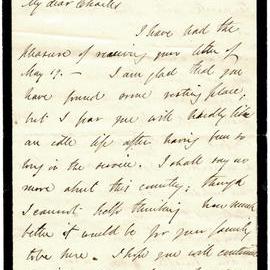 My dear Charles
I have had the
pleasure of receiving your letter of
May 19. — I am glad that you
have found some resting place,
but I fear you will hardly like
an idle life after having been so
long in the service. I shall say no
more about this country; though
I cannot help thinking how much
better it would be for your family
to be here. I hope you will continue